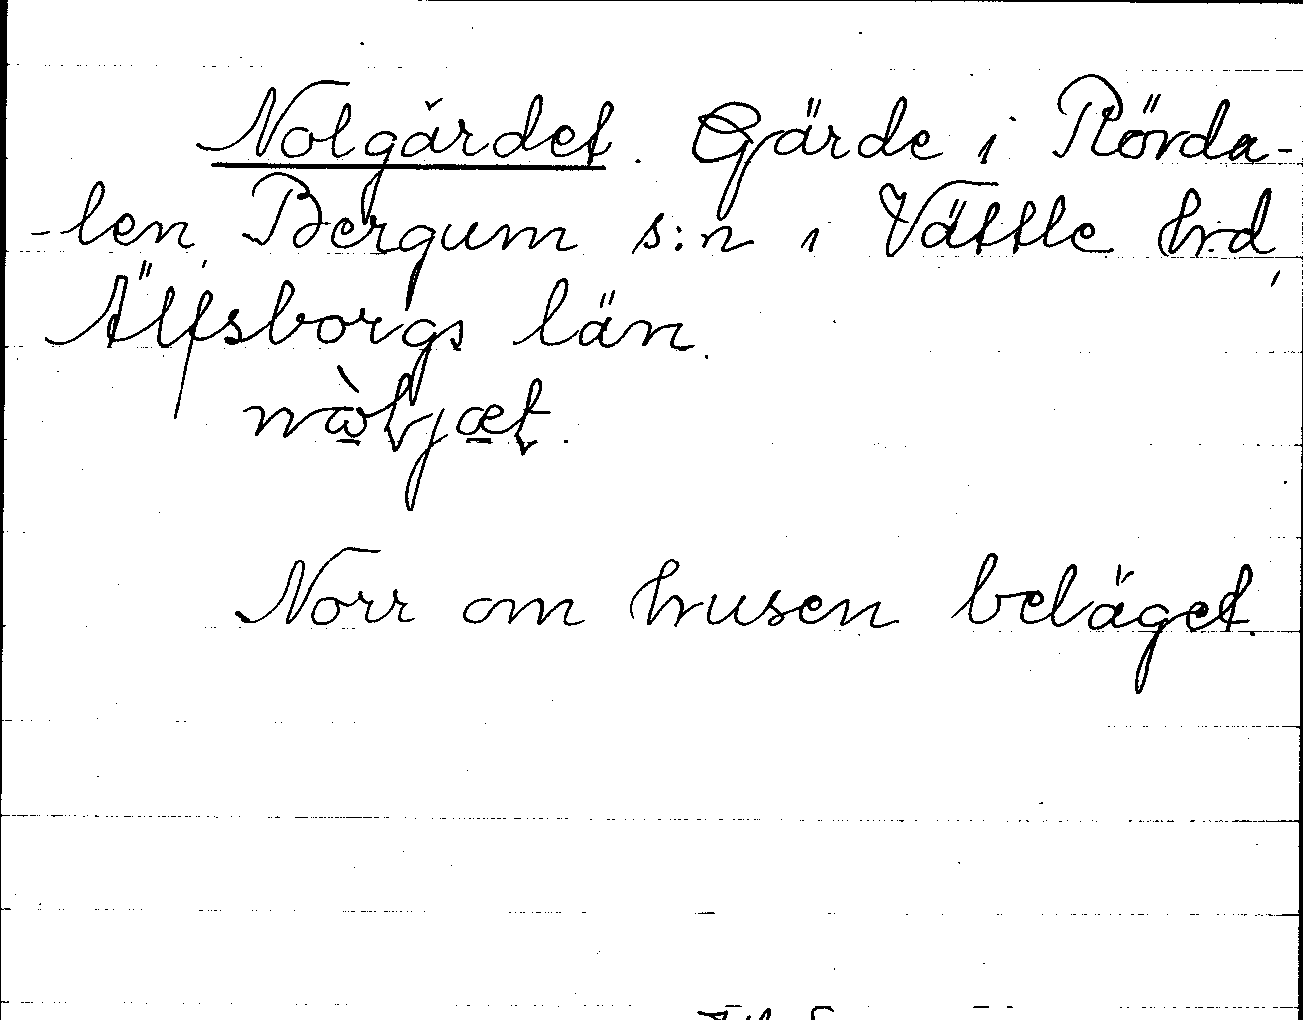 Nolgärdet. Gärde i Rörda-
-len, Bergum s:n i Vättle hrd,
Älfsborgs län.
Norr om husen beläget.